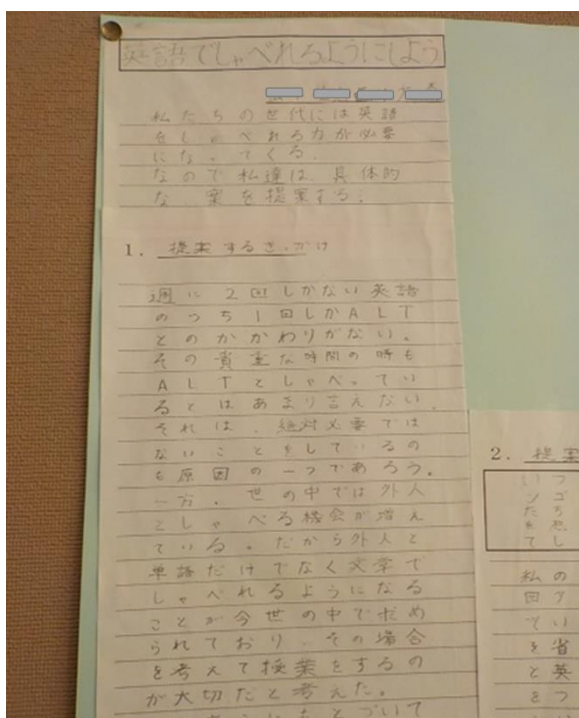 英語でしゃべれるようにしよう
私たちの世代には英語
をしゃべれる力が必要
になってくる。
なので私達は、具体的
な 案を提案する。
1. 提案するきっかけ
週に2回しかない英語
のうち1回しかALT
とのかかわりがない。
その貴重な時間の時も
ALTとしゃべってい
るとはあまり言えない。
それは、絶対必要では
ないことをしているの
も原因の一つであろう。
一方、世の中では外人
としゃべる機会が増え
ている。だから外人と
単語だけでなく文章で
しゃべれるようになる
ことが今世の中で求め
られており、その場合
を考えて授業をするの
が大切だと考えた。
2. 提案
私の
回
てい
を省
と英
をつ